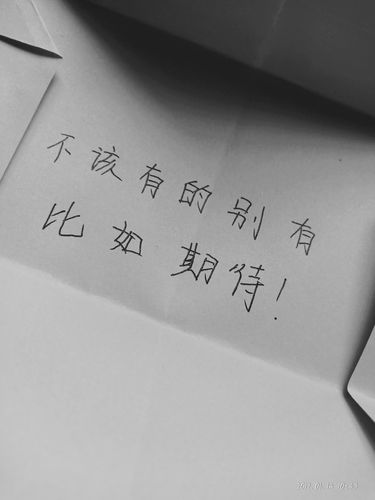 不该有的别有
比如期待!